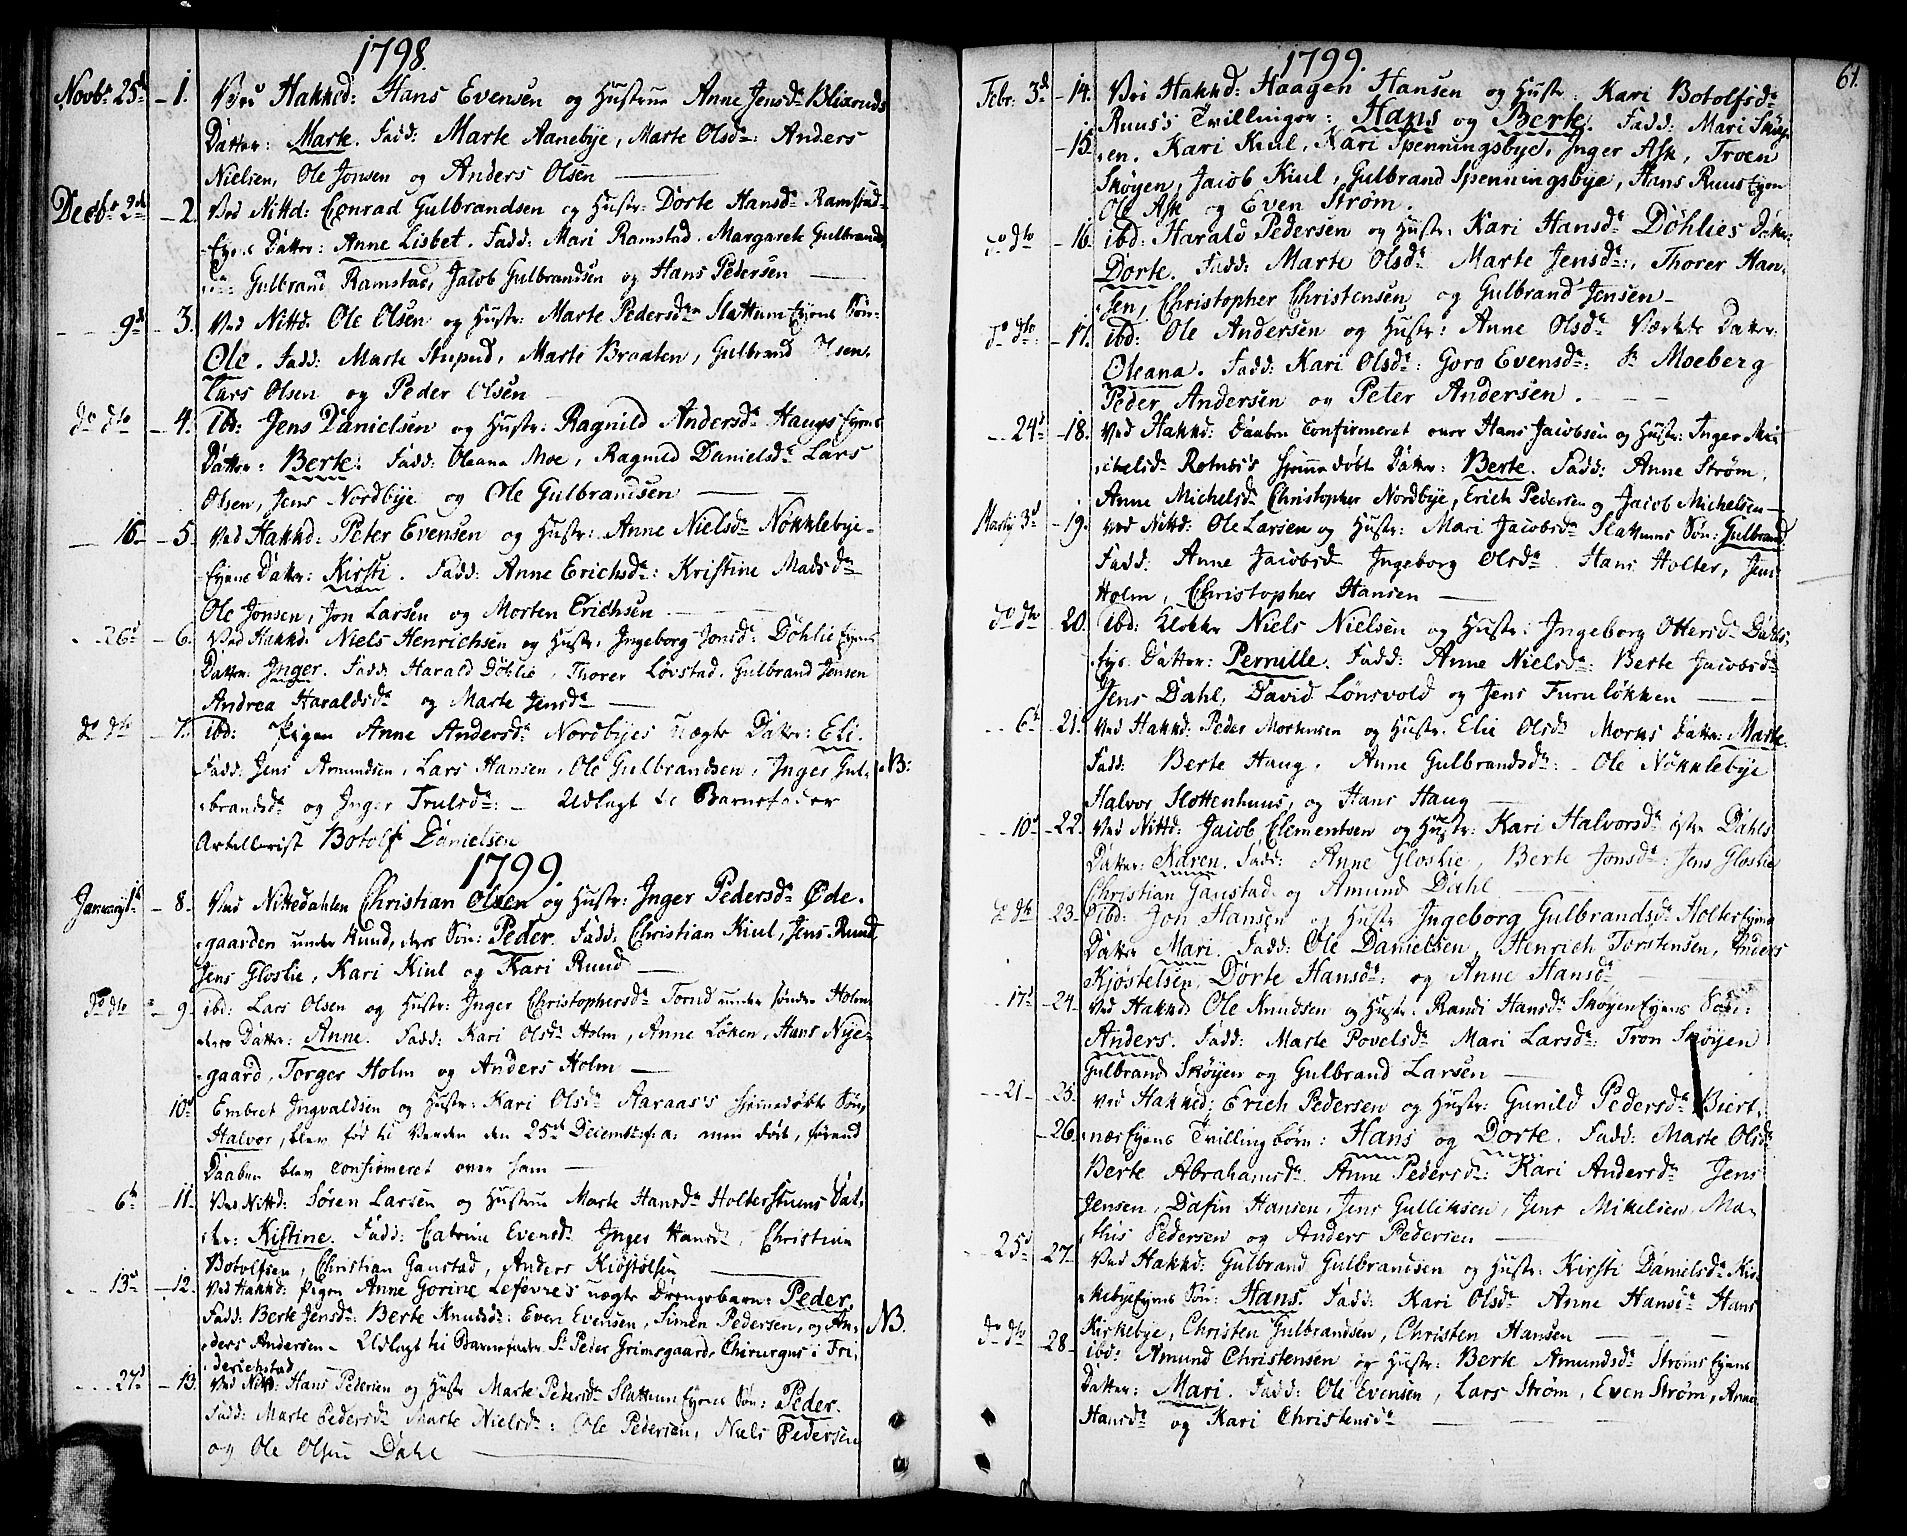 1798.
Novbr 25d - 1. Ved Hakkd: Hans Evensen og Hustrue Anne Jensdr Blixruds
Datter: Marte. Fadd: Marte Aanebye, Marte Olsdr: Anders
Nielsen, Ole Jonsen og Anders Olsen
Decbr 2d - 2. Ved Nittd: Conrad Gulbrandsen og Hustr: Dorte Hansdr Ramstad-
Eyens Datter: Anne Lisbet. Fadd: Mari Ramstad. Margarete Gulbrands
dr: Gulbrand Ramstad, Jacob Gulbrandsen og Hans Pedersen
9d - 3. Ved Nittd. Ole Olsen og Hustr: Marte Pedersdr Slattum Eyens Søn-
Ole. Fadd: Marte Stupud, Marte Braaten, Gulbrand Olsen,
Lars Olsen og Peder Olsen
do dto - 4. ibd: Jens Danielsen og Hustr: Ragnild Andersdr Haugs Eyens
Datter: Berte. Fadd: Oleana Moe, Ragnild Danielsdr Lars
Olsen, Jens Nordbye og Ole Gulbrandsen
16 - 5. Ved Hakkd: Peter Evensen og Hustr: Anne Nielsdr Nøkklebye-
Eyens Datter: Kirsti. Fadd: Anne Erichsdr: Kristine Madsdr
Ole Jonsen, Jon Larsen og Morten Erichsen
26d - 6. Ved Hakkd: Niels Henrichsen og Hustr. Ingeborg Jonsdr: Døhlie Eyens
Datter: Inger. Fadd: Harald Døhlie, Thorer Løvstad. Gulbrand Jensen
Andrea Haraldsdr og Marte Jensdr
do dto - 7. ibd: Pigen Anne Andersdr Nordbyes uægte Datter: Eli.
Fadd: Jens Amundsen, Lars Hansen, Ole Gulbrandsen, Inger Gul- NB:
brandsdr og Inger Trulsdr: - Udlagt til Barnefader
Artellerist Botolf Danielsen
1799.
Januarij 1d - 8. Ved Nittedahlen Christian Olsen og Hustr: Inger Pedersdr Øde-
gaarden under Rund, deres Søn: Peder. Fadd: Christian Kiul, Jens Rund
Jens Gloslie, Kari Kiul og Kari Rund
do dto - 9. ibd: Lars Olsen og Hustr: Inger Christophersdr Tornd under søndre Holm
deres Datter: Anne. Fadd: Kari Olsdr Holm, Anne Løken, Hans Nye-
gaard, Torger Holm og Anders Holm
10d Embret Ingvaldsen og Hustr: Kari Olsdr Aaraas's hjemedøbte Søn
Halvor, blev fød til Verden den 25de Decembr f: a: men døde, førend
Daaben blev confirmeret over ham
6te - 11. Ved Nittd: Søren Larsen og Hustrue Marte Hansdr Holterstuens Dat-
ter: Kistine. Fadd: Catrine Evensdr Inger Hansdr, Christian
Botolfsen, Christian Ganstad, Anders Kiøstolsen
13d - 12. Ved Hakkd: Pigen Anne Gorine Lefevre's uægte Drengebarn: Peder.
Fadd: Berte Jensdr: Berte Knudsdr: Even Evensen, Simen Pedersen, og An- NB.
ders Andersen - Udlagt til Barnefader Sr Peder Grimsgaard, Chirurgus i Fri-
derichstad
27d - 13. Ved Nittd: Hans Pedersen og Hustr Marte Pedersdr Slattum Eyens Søn: Peder.
Fadd: Marte Pedersdr Marte Nielsdr: Ole Pedersen, Niels Pedersen
og Ole Olsen Dahl
1799. 61.
Febr: 3d - 14. Ved Hakkd: Haagen Hansen og Hustr: Kari Botolfsdr
Ruus's Tvillinger: Hans og Berte. Fadd: Mari Skøy-
- 15. en. Kari Kiul, Kari Spenningsbye, Inger Ask, Troen
Skøyen, Jacob Kiul, Gulbrand Spenningsbye, Hans Ruus Eyen
Ole Ask og Even Strøm.
do dto - 16. ibd: Harald Pedersen og Hustr: Kari Hansdr Døhlies Datter
Dorte. Fadd: Marte Olsdr Marte Jensdr:, Thorer Han-
sen, Christopher Christensen og Gulbrand Jensen
do dto - 17. ibd: Ole Andersen og Hustr: Anne Olsdr Værkets Datter:
Oleana. Fadd: Kari Olsdr: Goro Evensdr: Sr Moeberg
Peder Andersen og Peter Andersen.
24d - 18. Ved Hakkd: Daaben confirmeret over Hans Jacobsen og Hustr: Inger Mi-
chelsdr Rotnæs's hjemmedøbte Datter: Berte. Fadd: Anne Strøm,
Anne Michelsdr Christopher Nordbye, Erich Pedersen og Jacob Michelsen
Martij 3d - 19. Ved Nittd: Ole Larsen og Hustr: Mari Jacobsdr Slattums Søn: Gulbrand.
Fadd: Anne Jacobsdr Ingeborg Olsdr. Hans Holter, Jens
Holm, Christopher Hansen
do dto - 20. ibd: Klokker Niels Nielsen og Hustr: Ingeborg Ottersdr Dahls
Eye: Datter: Pernille. Fadd: Anne Nielsdr: Berte Jacobsdr
Jens Dahl, David Lønsvold og Jens Furuløkken
6te - 21. Ved Hakkd: Peder Mortensen og Hustr. Elie Olsdr Morks Datter: Marte.
Fadd: Berte Haug, Anne Gulbrandsdr: Ole Nøkklebye
Halvor Slottenhuus, og Hans Haug
10d - 22. Ved Nittd: Jacob Clementsen og Hustr: Kari Halvorsdr østre Dahls
Datter: Karen. Fadd: Anne Gloslie, Berte Jonsdr: Jens Gloslie
Christian Ganstad og Amund Dahl
do dto - 23. ibd: Jon Hansen og Hustr Ingeborg Gulbrandsdr Holter Eyens
Datter Mari. Fadd: Ole Danielsen, Henrich Torstensen, Anders
Kjøstelsen, Dorte Hansdr: og Anne Hansdr
17d - 24. Ved Hakkd Ole Knudsen og Hustr. Randi Hansdr Skøyen Eyens Søn:
Anders. Fadd: Marte Povelsdr Mari Larsdr: Tron Skøyen
Gulbrand Skøyen og Gulbrand Larsen
21 - 25. Ved Hakkd: Erich Pedersen og Hustr: Gunild Pedersdr Biert-
- 26. næs Eyens Tvillingbørn: Hans og Dorte. Fadd: Marte Olsdr
Berte Abrahamsdr Anne Pedersdr: Kari Andersdr Jens
Jensen, Dafin Hansen, Jens Gulliksen, Jens Mikelsen, Ma-
this Pedersen og Anders Pedersen
25d - 27. Ved Hakkd: Gulbrand Gulbrandsen og Hustr: Kirsti Danielsdr Kir-
kebye Eyens Søn: Hans. Fadd: Kari Olsdr Anne Hansdr Hans
Kirkebye, Christen Gulbrandsen, Christen Hansen
do dto - 28. ibd: Amund Christensen og Hustr: Berte Amundsdr Strøms Eyens
Datter: Mari. Fadd: Ole Evensen, Lars Strøm, Even Strøm, Anne
Hansdr og Kari Christensdr